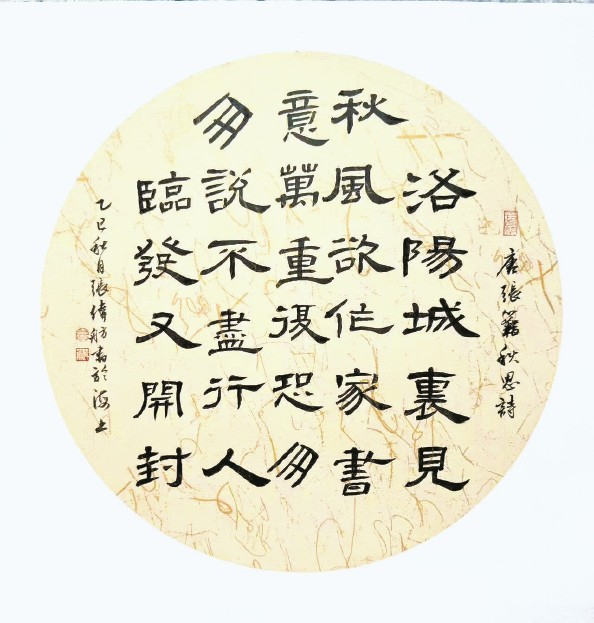 唐張籍秋思詩
洛陽城裏見
秋風欲作家書
意萬重復恐匆
匆說不盡行人
臨發又開封
乙巳秋月張偉舫書於海上